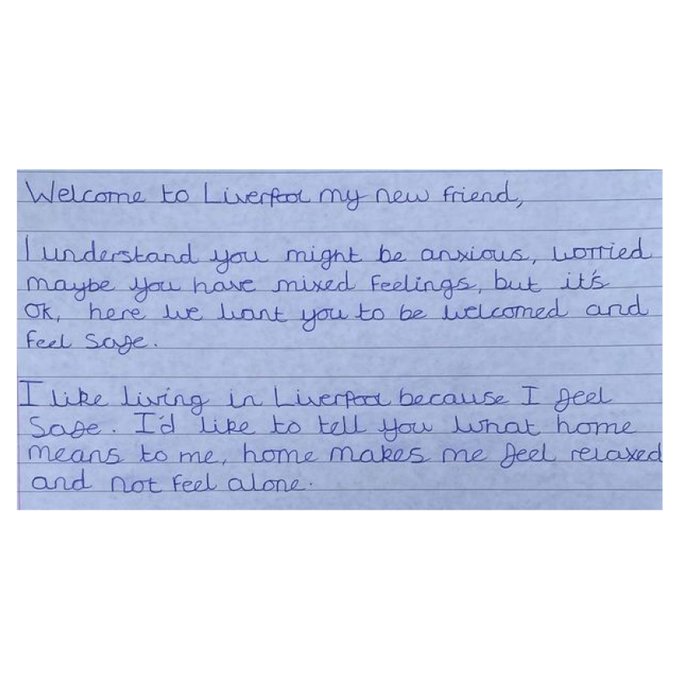 Welcome to Liverpool my new friend,
I understand you might be anxious, worried
maybe you have mixed feelings, but it's
OK, here we want you to be welcomed and
feel safe.
I like living in Liverpool because I feel
safe. I'd like to tell you what home
means to me, home makes me feel relaxed
and not feel alone.